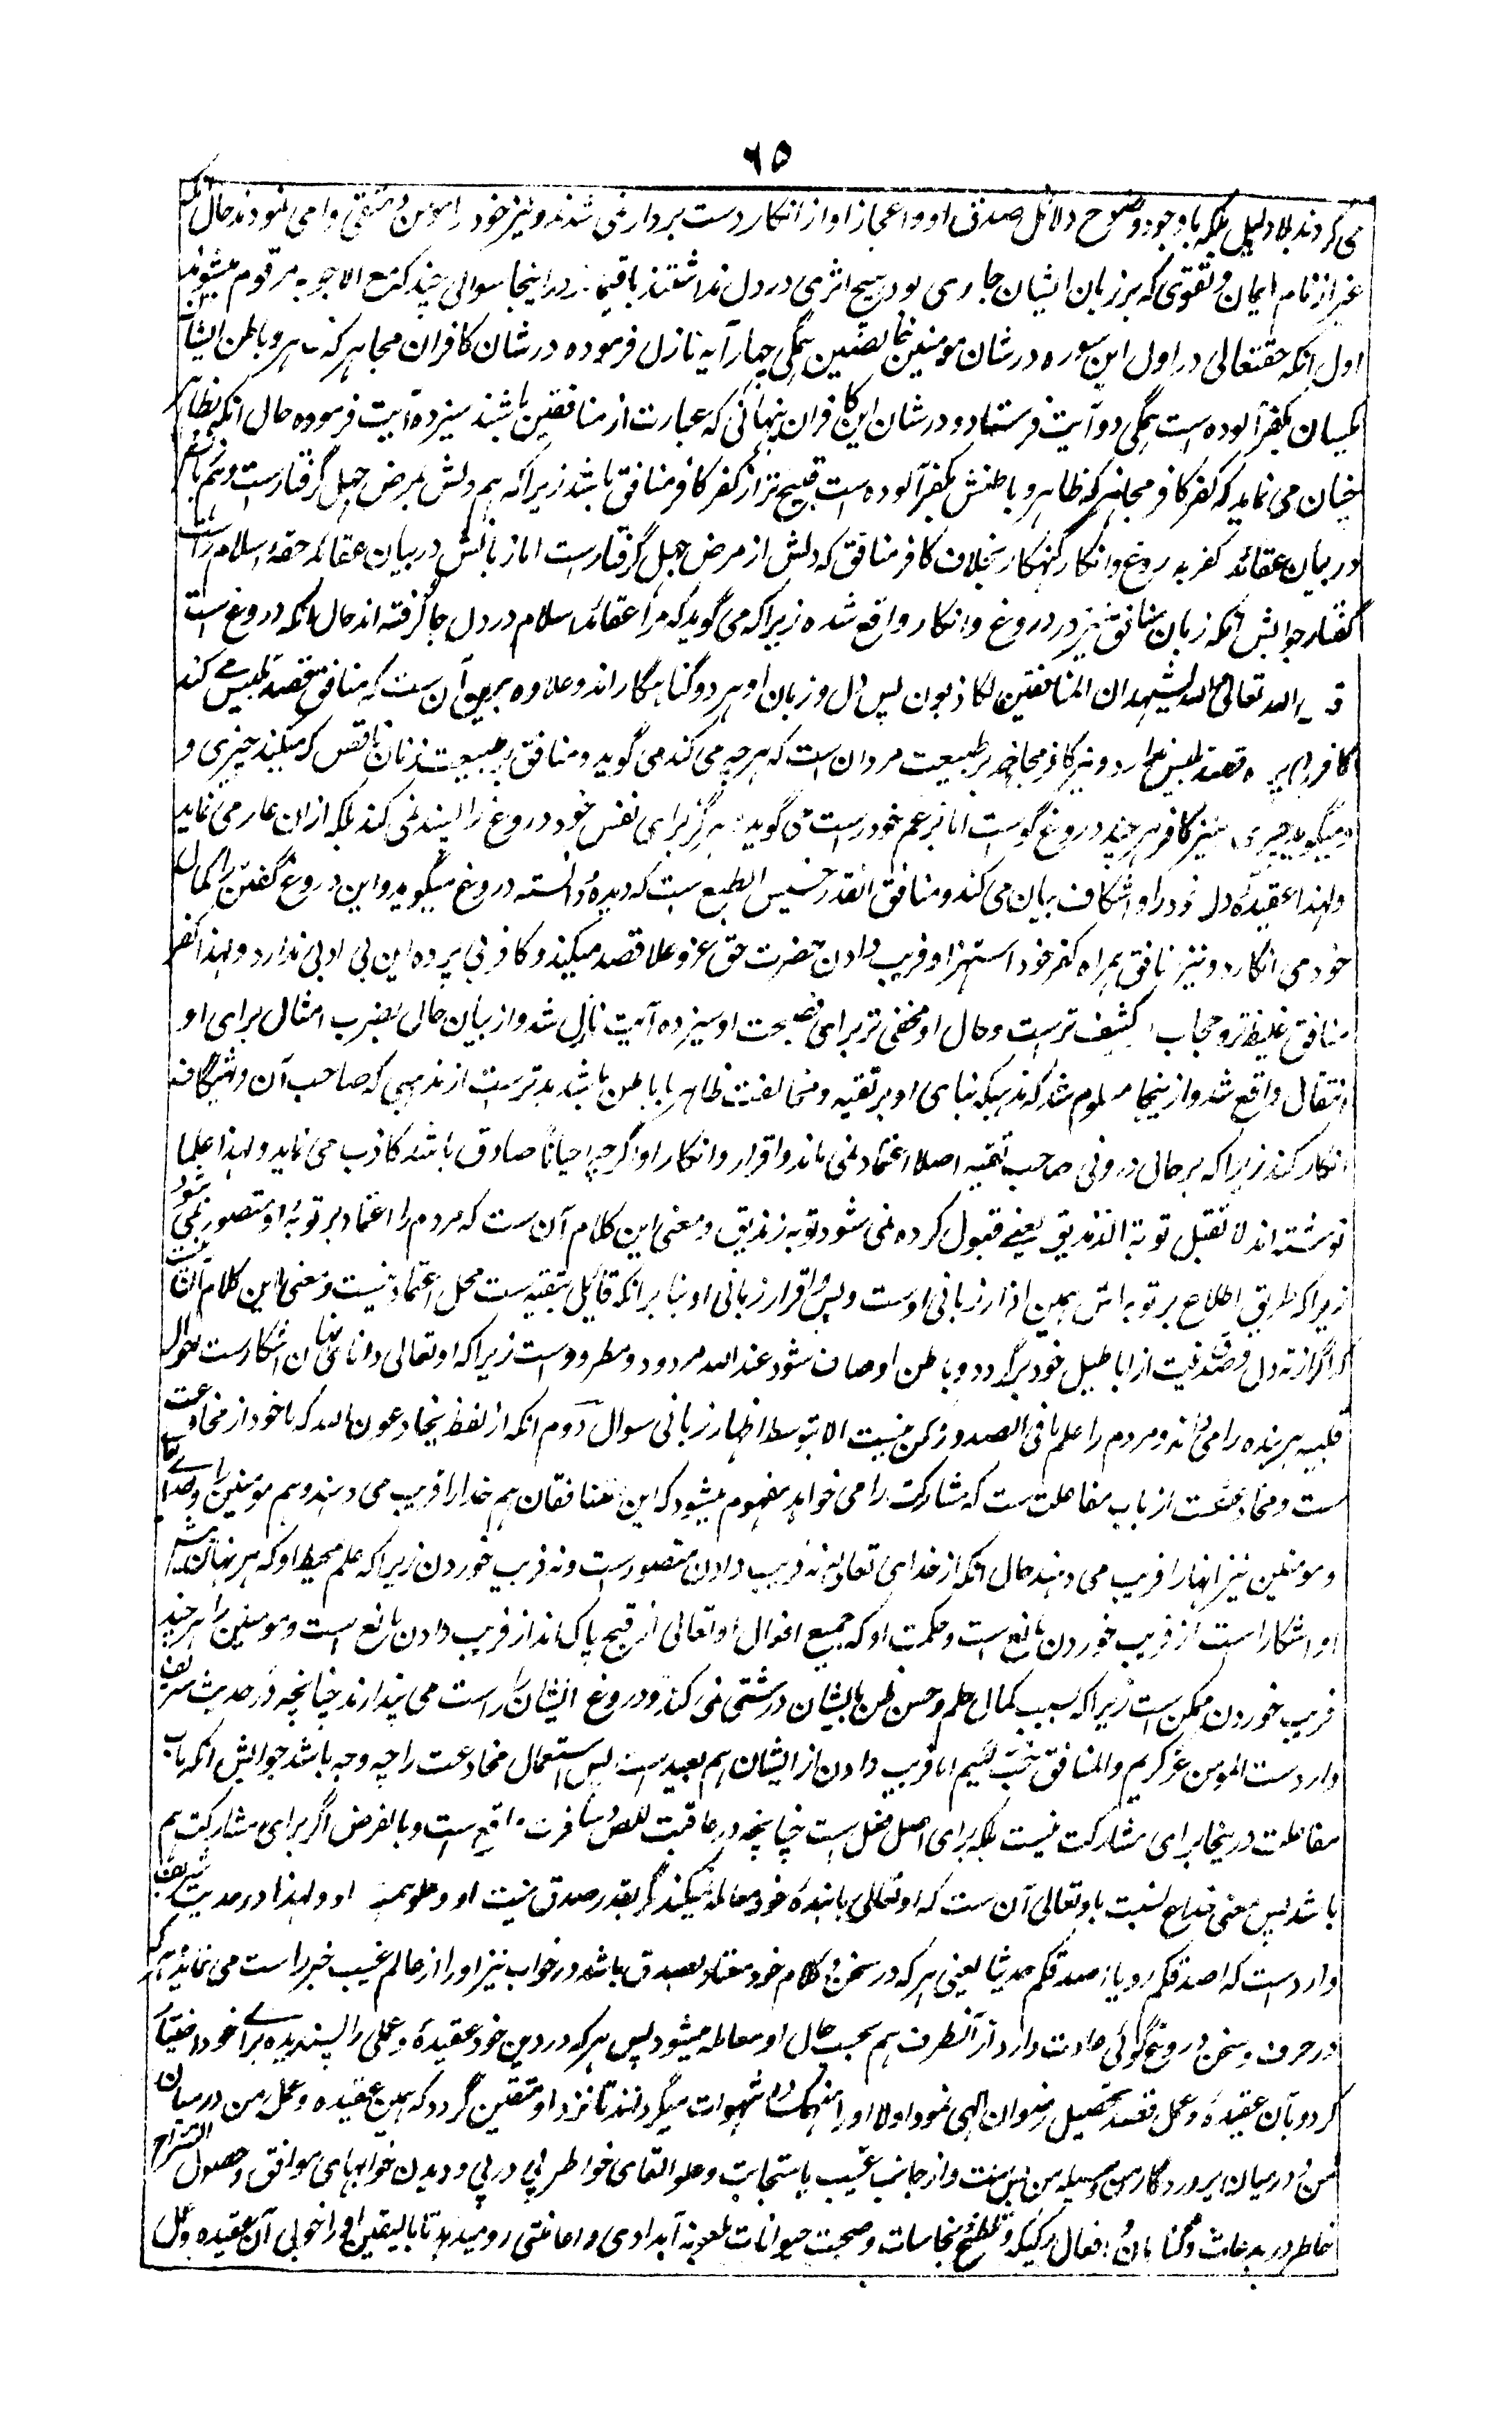 ٦٥
می کردند بلا دلیل بلکه با وجود وضوح دلائل صدق او و اعجاز او از انکار دست بردار نمی شدند و نیز خود را مومن و متقی وا می نمودند حال آنکه
غیر از نام ایمان و تقوی که بر زبان ایشان جاری بود هیچ اثری در دل نداشتند باقیماند در اینجا سوالی چند که مع الاجوبه مرقوم میشوند
اول آنکه حقتعالی در اول این سوره در شان مومنین خالصین همگی چهار آیه نازل فرموده در شان کافران مجاهر که ظاهر و باطن ایشان
یکسان بکفر آلوده است همگی دو آیت فرستاد و در شان این کافران پنهانی که عبارت از منافقین باشند سیزده آیت فرموده حال آنکه بظاهر
چنان می نماید که کفر کافر مجاهر که ظاهر و باطنش بکفر آلوده است قبیح تر از کفر کافر منافق باشد زیرا که هم دلش بمرض جهل گرفتارست و هم زبانش
در بیان عقائد کفریه دروغ و انکار گنهکار بخلاف کافر منافق که دلش از مرض جهل گرفتارست اما زبانش در بیان عقائد حقه اسلام راست
گفتار جوابش آنکه زبان منافق نیز در دروغ و انکار واقع شده زیرا که می گوید که مرا عقائد اسلام در دل جا گرفته اند حال آنکه دروغ ست
قال الله تعالی والله یشهد ان المنافقین لکاذبون پس دل و زبان او هر دو گناهگار اند و علاوه برین آن ست که منافق قصد تلبیس می کند
کافر مجاهر قصد تلبیس ندارد و نیز کافر مجاهر بر طبیعت مردان ست که هرچه می کند می گوید و منافق بر طبیعت زنان ناقص که میکند چیزی و
میگوید چیزی نیز کافر هر چند دروغ گوست اما بزعم خود راست می گوید هرگز برای نفس خود دروغ را پسند نمی کند بلکه ازان عار می نماید
ولهذا عقیده دل خود را و اشگاف بیان می کند و منافق آنقدر خسیس الطبع ست که دیده و دانسته دروغ میگوید و این دروغ گفتن را کمال
خود می انگارد و نیز منافق همراه کفر خود استهزا و فریب دادن حضرت حق عز و علا قصد میکند و کافر بی پرده این بی ادبی ندارد و لهذا کفر
منافق غلیظ تر و حجاب او کثیف ترست و حال او مخفی تر برای فضیحت او سیزده آیت نازل شد و از بیان حالی بضرب امثال برای او
انتقال واقع شد و از ینجا معلوم شد که مذهبیکه بنای او بر تقیه و مخالفت ظاهر با باطن باشد بدترست از مذهبی که صاحب آن واشگاف
انکار کند زیرا که بر حال درونی صاحب تقیه اصلا اعتماد نمی ماند و اقرار و انکار او اگرچه احیاناً صادق باشد کاذب می نماید و لهذا علما
نوشته اند لا تقبل توبة الزندیق یعنی قبول کرده نمی شود توبه زندیق و معنی این کلام آن ست که مردم را اعتماد بر توبه او متصور نمی شود
زیرا که طریق اطلاع بر توبه اش همین اقرار زبانی اوست و پس اقرار زبانی او بنا بر آنکه قائل بتقیه ست محل اعتماد نیست و معنی این کلام آن نیست
که اگر از ته دل و صدق نیت از اباطیل خود برگردد و باطن او صاف شود عند الله مردود و مطرود است زیرا که او تعالی دانای نهان اشکارست احوال
قلبیه هر بنده را می داند و مردم را علم ما فی الصدور ممکن نیست الا بتوسط اظهار زبانی سوال دوم آنکه از لفظ یخادعون الله که ماخوذ از مخادعت
ست و مخادعت از باب مفاعلت ست که مشارکت را می خواهد مفهوم میشود که این منافقان هم خدا را فریب می دهند و هم مومنین را و خدا تعالی
و مومنین نیز آنها را فریب می دهند حال آنکه از خدای تعالی نه فریب دادن متصورست و نه فریب خوردن زیرا که علم محیط او که هر نهان پیش
او اشکارا ست از فریب خوردن مانع است و حکمت او که جمیع افعال او تعالی از قبح پاک اند از فریب دادن مانع است و مومنین را هر چند
فریب خوردن ممکن است زیرا که بسبب کمال حلم و حسن ظن بایشان درشتی نمی کند و دروغ ایشان را راست می پندارند چنانچه در حدیث شریف
وارد ست المومن غر کریم والمنافق خب لئیم اما فریب دادن از ایشان هم بعید ست پس استعمال مخادعت را چه وجه باشد جوابش آنکه باب
مفاعلت درینجا برای مشارکت نیست بلکه برای اصل فعل ست چنانچه در عاقبت اللص و سافرت واقع است و بالفرض اگر برای مشارکت هم
باشد پس معنی خداع نسبت باو تعالی آن ست که او تعالی با بنده خود معامله نمیکند مگر بقدر صدق نیت او و علو همت او و لهذا در حدیث شریف
وارد ست که اصدقکم رویا اصدقکم حدیثا یعنی هر که در سخن و کلام خود معتاد بصدق باشد در خواب نیز او را از عالم غیب خبر راست می نمایند و هر که
در حرف و سخن دروغ گوئی عادت دارد از آنطرف هم بحسب حال او معامله میشود پس هر که در دین خود عقیده و عملی را پسندیده برای خود اختیار
کرد و بآن عقیده و عمل قصد تحصیل رضوان الهی نمود اولا او را منهمک در شهوات میگردانند تا نزد او متیقن گردد که همین عقیده و عمل من درمیان
من و درمیان پروردگار من وسیله من بس ست و از جانب غیب باستجابت دعا و القای خواطر پی در پی و دیدن خوابهای موافق و حصول انشراح
خاطر در بدعات و گناهان و افعال رکیکه و تلطخ بنجاسات و صحبت حیوانات ملعونه آمدادی و اعانتی رو میدهد تا بالیقین او را خوبی آن عقیده و عمل